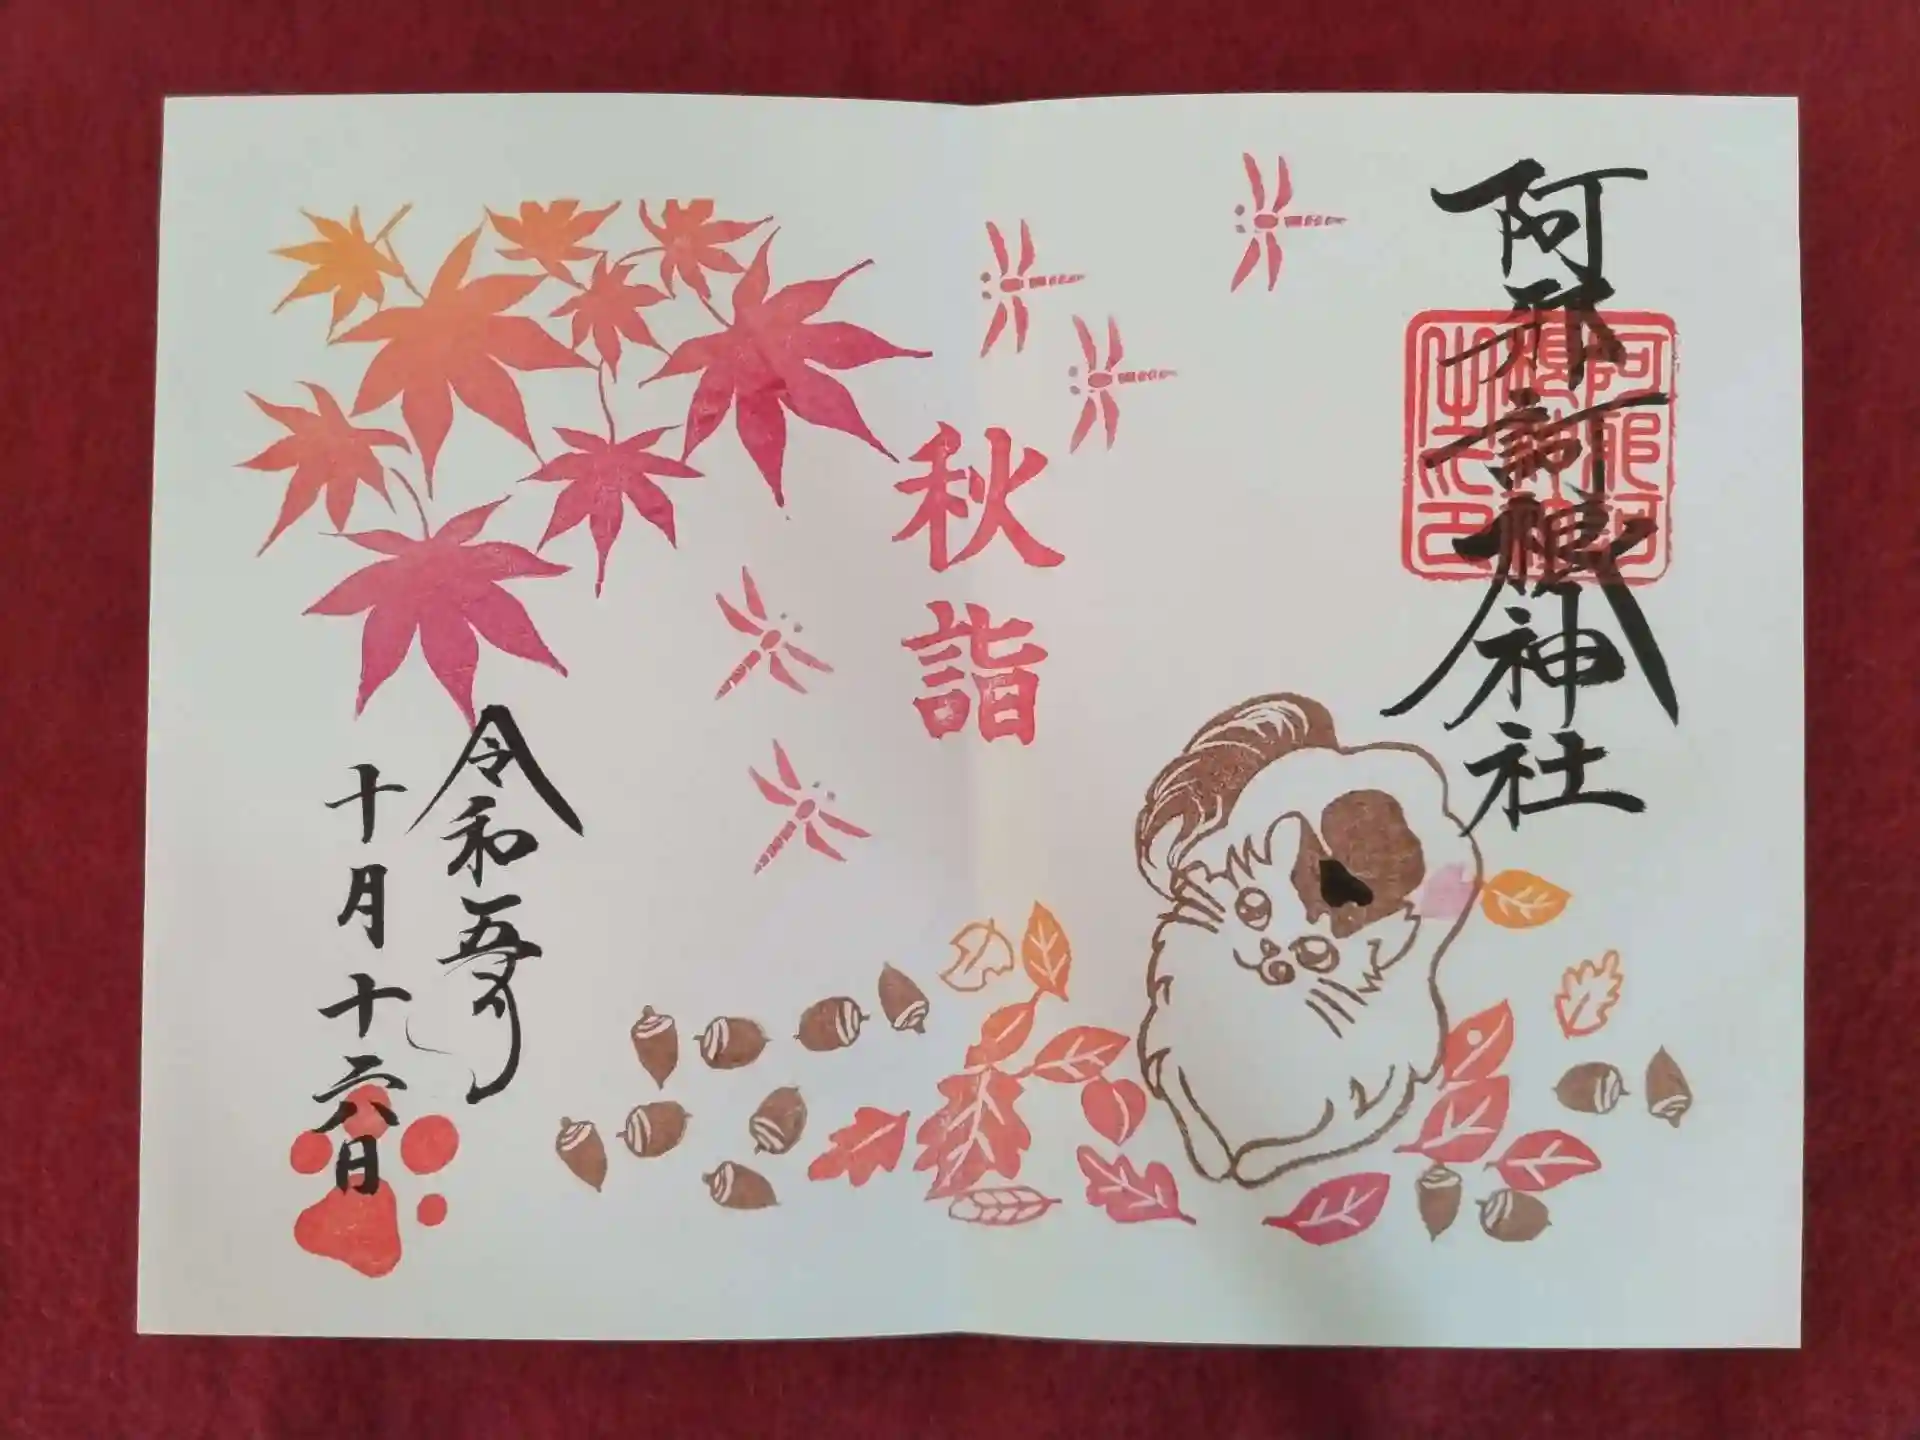 阿邪訶根神社
阿耶訶
根神社
之印
秋詣
令和五年
十月十六日